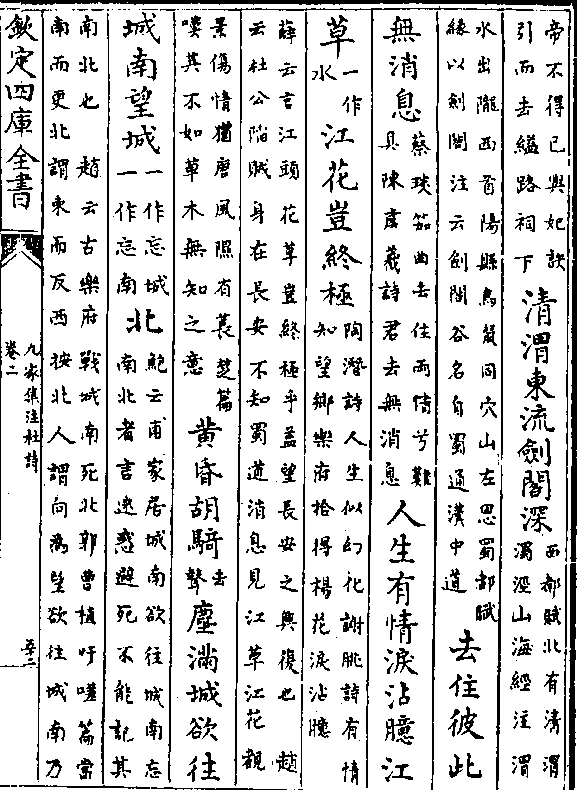 帝不得已與妃訣
引而去縊路祠下
清渭東流劍閣深
西都賦北有清渭
濁涇山海經注渭
水出隴西首陽縣鳥鼠同穴山左思蜀都賦
緣以劍閣注云劍閣谷名自蜀通漢中道
去住彼此
無消息
蔡琰笳曲去住兩情兮難
具陳虞羲詩君去無消息
人生有情淚沾臆江
草
一作
水
江花豈終極
陶潛詩人生似幻化謝朓詩有情
知望鄉樂府拾得楊花淚沾臆
薛云言江頭花草豈終極乎蓋望長安之興復也 趙
云杜公陷賊身在長安不知蜀道消息見江草江花觀
景傷情猶唐風隰有萇楚篇
嘆其不如草木無知之意
黄昏胡騎
去
聲
塵滿城欲往
城南望城
一作忘城
一作忘南
北
鮑云甫家居城南欲往城南忘
南北者言迷惑避死不能記其
南北也 趙云古樂府戰城南死北郭曹植吁嗟篇當
南而更北謂東而反西按北人謂向為望欲往城南乃
欽定四庫全書
九家集注杜詩
卷二